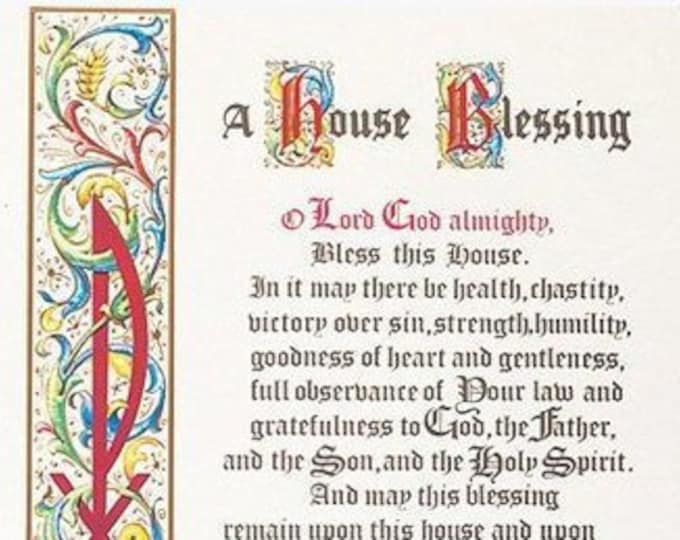 A House Blessing
O Lord God almighty,
Bless this House.
In it may there be health, chastity,
victory over sin, strength, humility,
goodness of heart and gentleness,
full observance of Your law and
gratefulness to God, the Father,
and the Son, and the Holy Spirit.
And may this blessing
remain upon this house and upon